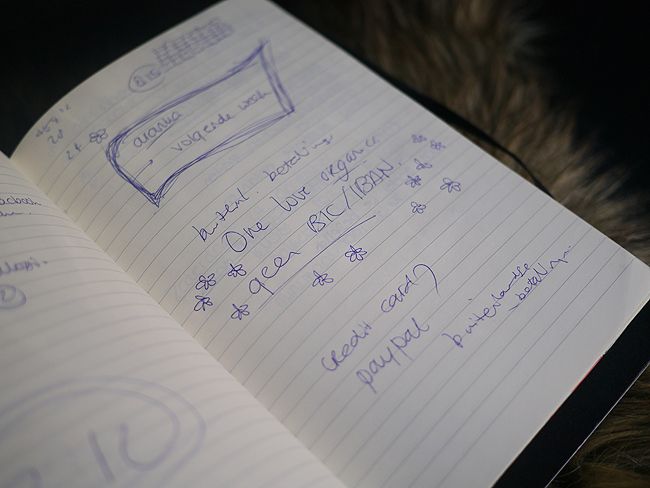 24
aranka
volgende week
buitenl. betaling.
One love organics
geen BIC/IBAN.
credit card?
paypal
buitenlandse
betalingen.